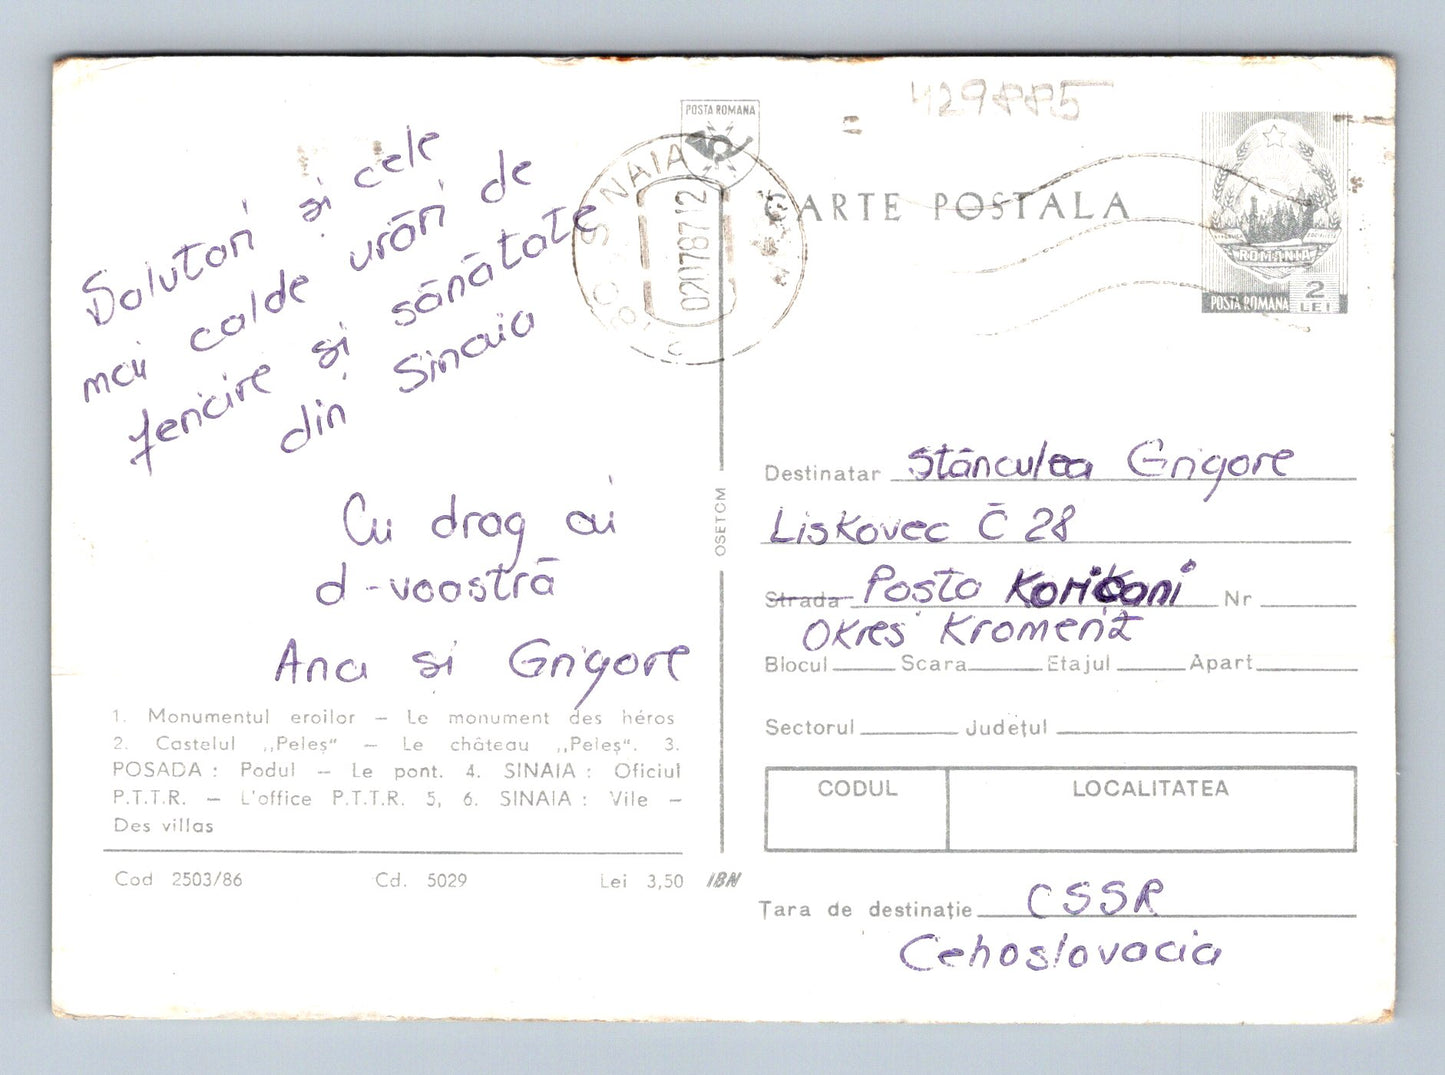 Salutari și cele
mai calde urări de
fericire și sănătate
din Sinaia
Cu drag ai
d-voastră
Ana si Grigore
1. Monumentul eroilor – Le monument des héros
2. Castelul „Peleș“ – Le château „Peleș“. 3.
POSADA : Podul – Le pont. 4. SINAIA : Oficiul
P.T.T.R. – L'office P.T.T.R. 5, 6. SINAIA : Vile –
Des villas
Cod 2503/86 Cd. 5029 Lei 3,50 IBN
OSETCM
POSTA ROMANA
SINAIA
020787 12
CARTE POSTALA
ROMANIA
POSTA ROMANA 2 LEI
Destinatar Stănculea Grigore
Liskovec Č 28
Strada Posta Nr
Okres Kromeriz
Blocul Scara Etajul Apart
Sectorul Județul
CODUL LOCALITATEA
Țara de destinație CSSR
Cehoslovacia